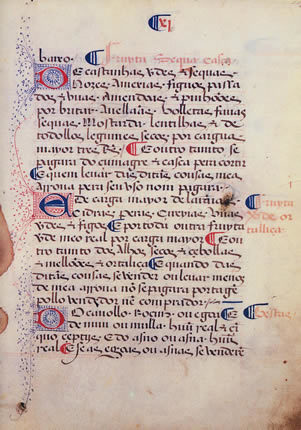 xj
bareo. Fruyta Sequa casca
De castanhas vdes & sequas
Nozes Ameixias figuos passa
dos & huuas Amendoas & pinhõoes
por britar Auellãas bolletas fauas
sequas Mostarda lentilhas & de
todollos legumes secos por cargua
mayor tres Rs. E outro tanto se
paguara do cumagre & casca pera cortir
E quem leuar das dictas cousas mea
arroua pera seu vso nom paguara.
E de cargua mayor de laranjas
Cidras peras Cireyias huuas
vdes & figos E por toda outra fruyta
vde meo real por cargua mayor E ou
tro tanto dos Alhos secos & cebollas
& mellõoes & ortaliça E quando das
dictas cousas se vender ou leuar menos
de mea arroua nõ se paguara portage
pollo vendedor nem comprador
fruyta
vde or
taliça
Do cauallo Rocim ou egoa E
de muu ou mulla huũ real & ci
quo ceptijs E do asno ou asna huũ
real E se as egoas ou asnas se venderē
bestas